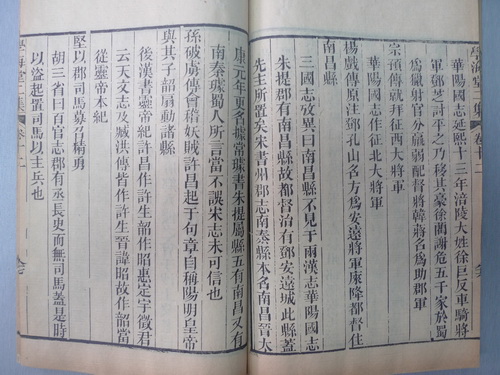 華陽國志延熙十三年涪陵大姓徐巨反車騎將
軍鄧芝討平之乃移其豪徐藺謝范五千家於蜀
為獵射官分羸弱配督將韓蔣名為助郡軍
宗預傳就拜征西大將軍
華陽國志作征北大將軍
楊戲傳原注鄧孔山名方為安遠將軍庲降都督住
南昌縣
三國志攷異曰南昌縣不見于兩漢志華陽國志
朱提郡有南昌縣故都督治有鄧安遠城此縣蓋
先主所置矣宋書州郡志南秦縣本名南昌晉大
康元年更名據常璩書朱提屬縣五有南昌又有
南秦璩蜀人所言當不誤宋志未可信也
孫破虜傳會稽妖賊許昌起于句章自稱陽明皇帝
與其子韶扇動諸縣
後漢書靈帝紀許昌作許生韶作昭惠定宇徵君
云天文志及臧洪傳皆作許生晉諱昭故作韶當
從靈帝本紀
堅以郡司馬募召精勇
胡三省曰百官志郡有丞長史而無司馬蓋是時
以盜起置司馬以主兵也
學海堂二集 卷十二